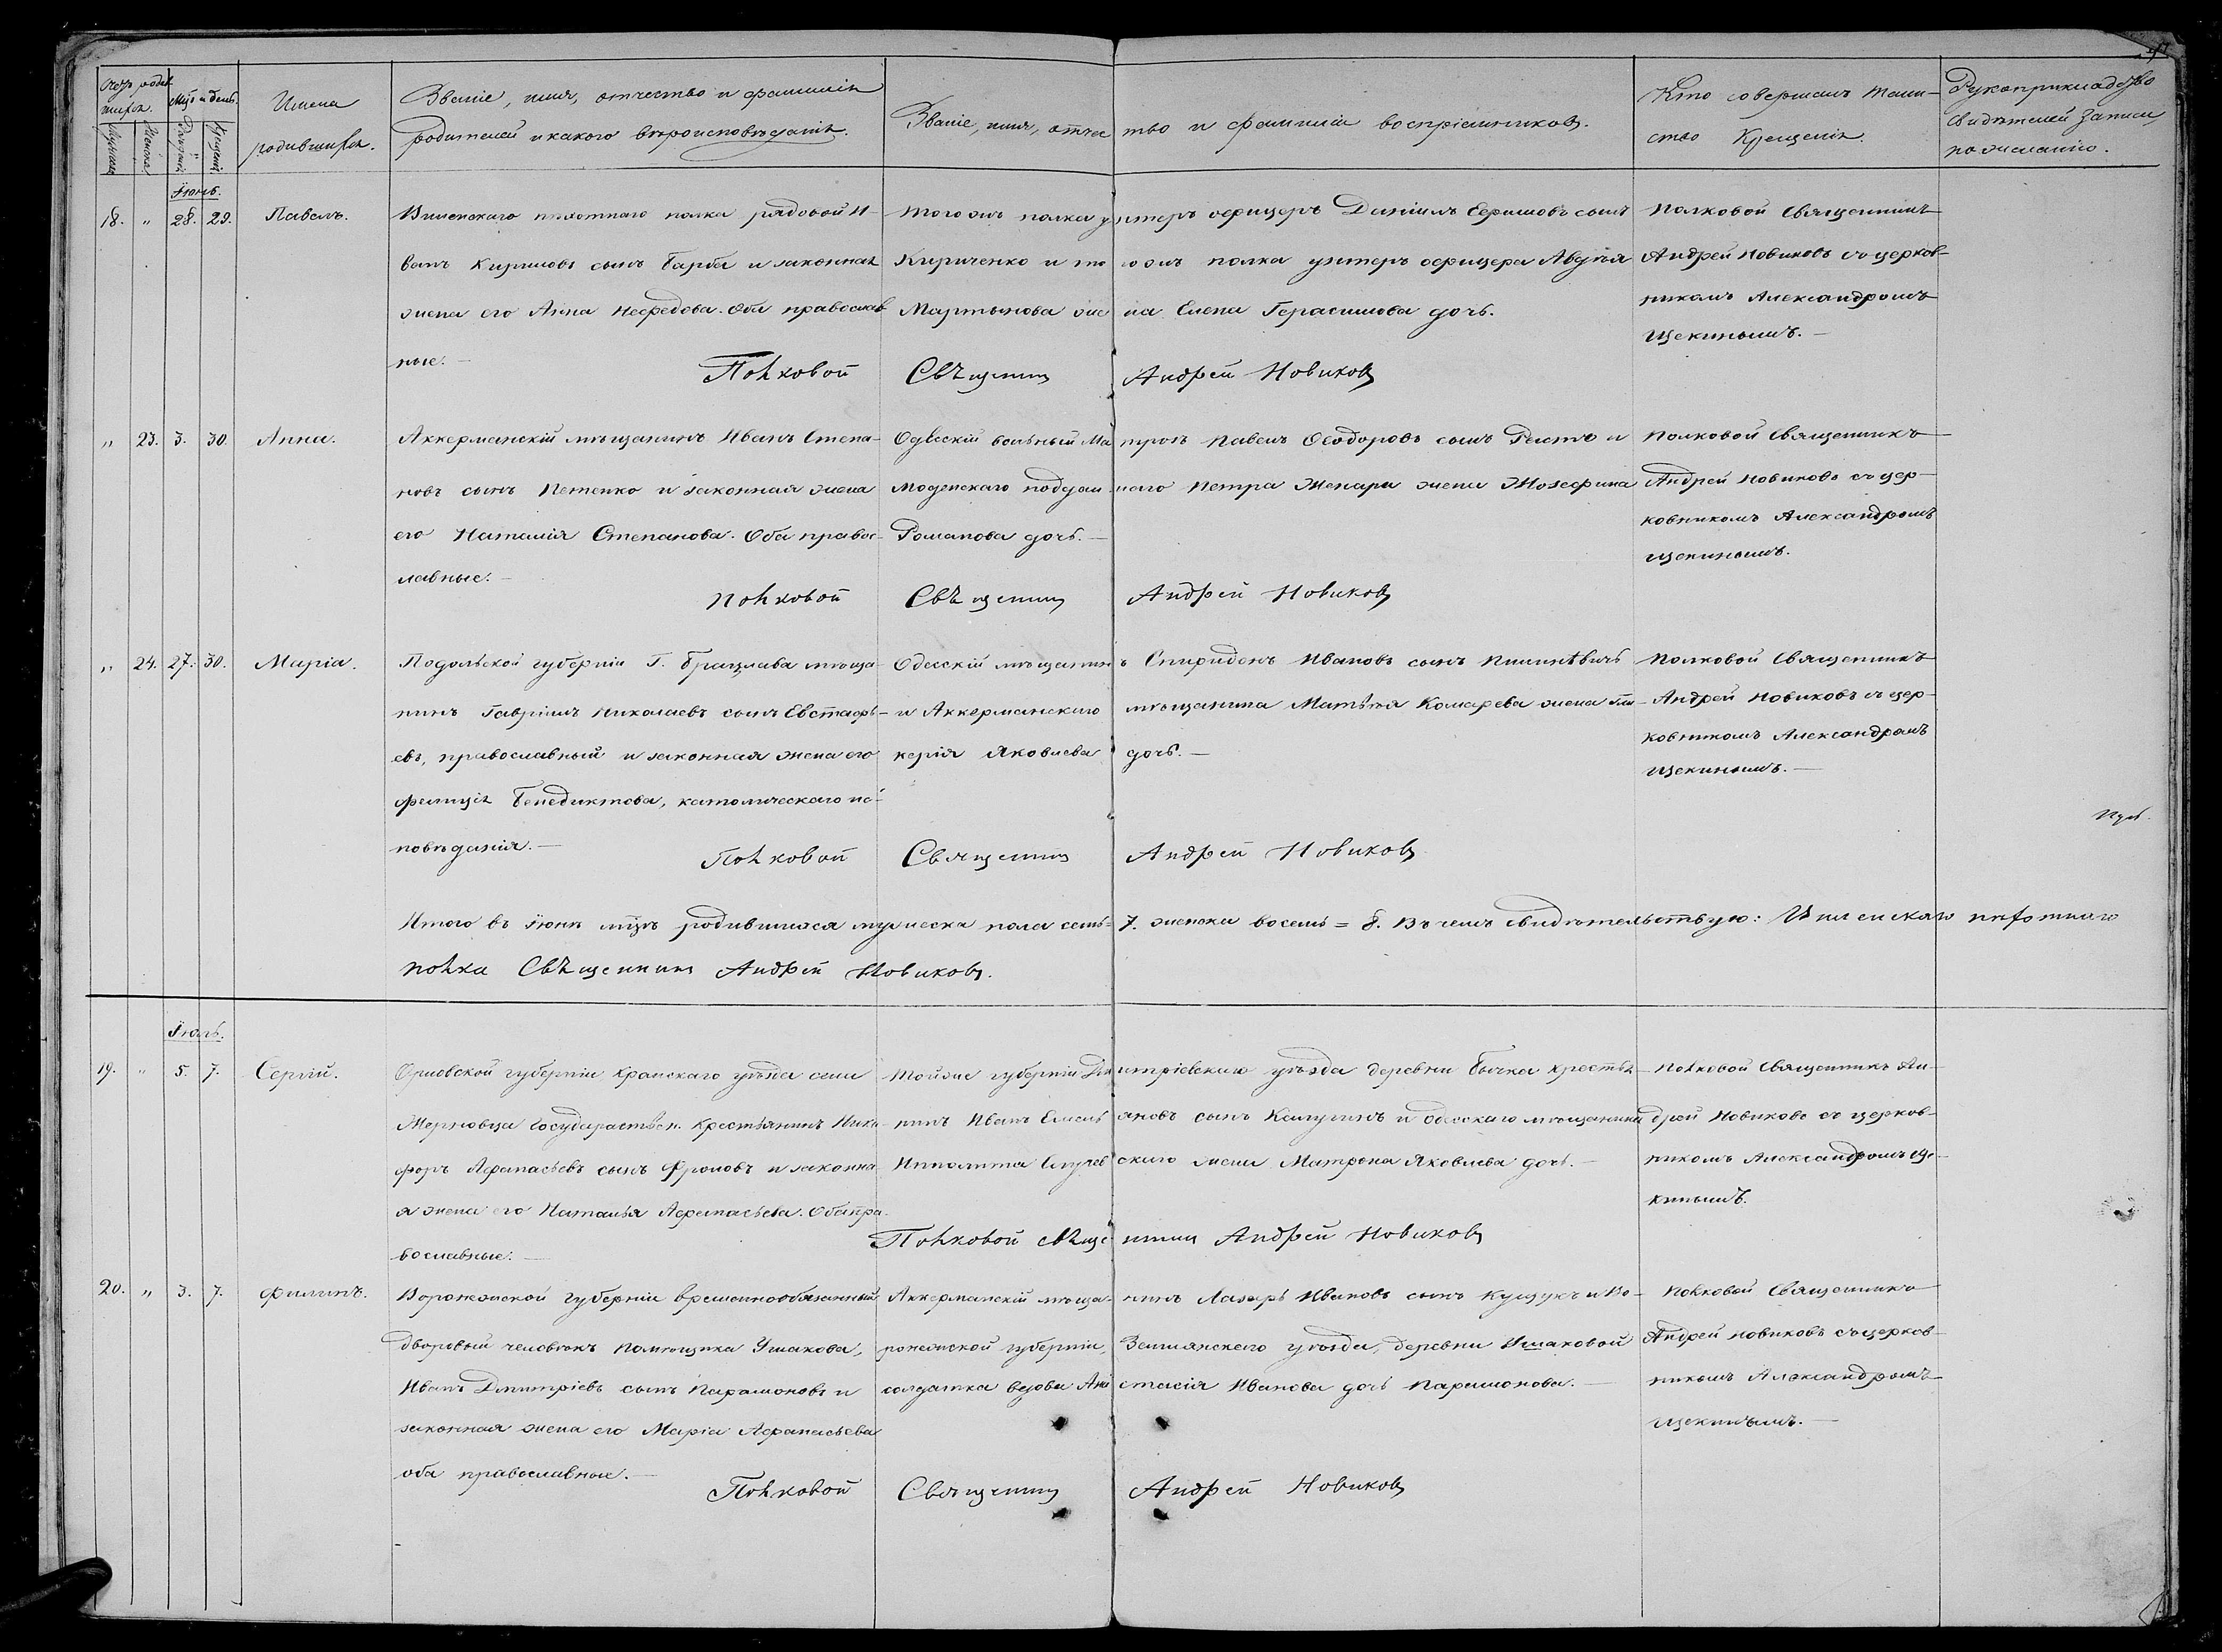 Счетъ родив- Мѣс. и день. Имена Званіе, имя, отчество и фамилія Званіе, имя, отчество и фамилія воспріемниковъ. Кто совершалъ таин- Рукоприкладство
шихся. родившихся. родителей и какого вѣроисповѣданія. ство Крещенія. свидѣтелей записи
по желанію.
Мужска Женска Рожденія Крещенія
Іюнь.
18. " 28. 29. Павелъ.
Виленскаго пѣхотнаго полка рядовой И-
ванъ Кириловъ сынъ Гарба и законная
жена его Анна Нефедова. Оба православ
ные. —
тогожъ полка унтеръ офицеръ Даніилъ Ефимовъ сынъ
Кириченко и тогожъ полка унтеръ офицера Авдѣя
Мартынова жена Елена Герасимова дочь.
Полковой Священникъ
Андрей Новиковъ съ церков-
никомъ Александромъ
Щекинымъ. —
Полковой Священникъ Андрей Новиковъ
" 23. 3. 30. Анна.
Аккерманскій мѣщанинъ Иванъ Степа-
новъ сынъ Петенко и законная жена
его Наталія Степанова. Оба правос-
лавные. —
Одесскій вольный Матросъ Павелъ Ѳеодоровъ сынъ и
Моденскаго подданнаго Петра Женари жена Жозефина
Романова дочь. —
Полковой Священникъ
Андрей Новиковъ съ цер-
ковникомъ Александромъ
Щекинымъ.
Полковой Священникъ Андрей Новиковъ
" 24. 27. 30. Марія.
Подольской губерніи Г. Брацлава мѣща-
нинъ Гавріилъ Николаевъ сынъ Евстафь-
евъ, православный и законная жена его
Фелиція Бенедиктова, католическаго ис-
повѣданія. —
Одесскій мѣщанинъ Спиридонъ Ивановъ сынъ
и Аккерманскаго мѣщанина Матвѣя Комарева жена Гли-
керія Яковлева дочь. —
Полковой Священникъ
Андрей Новиковъ съ цер-
ковникомъ Александромъ
Щекинымъ. —
Полковой Священникъ Андрей Новиковъ
Итого въ Іюнѣ мѣсяцѣ родившихся мужеска пола семь= 7. женска восемь = 8. Въ чемъ свидѣтельствую: Виленскаго пѣхотнаго
полка Священникъ Андрей Новиковъ.
Іюль.
19. " 5. 7. Сергій.
Орловской губерніи Кромскаго уѣзда села
Государствен. крестьянинъ Ники-
форъ Афанасьевъ сынъ Фроловъ и законна
я жена его Наталья Афанасьева. Оба пра-
вославные. —
Тойже губерніи Дмитріевскаго уѣзда деревни Бычка крестья-
нинъ Иванъ Емельяновъ сынъ Калугинъ и Одесскаго мѣщанина
Ипполита жена Матрона Яковлева дочь. —
Полковой Священникъ Ан-
дрей Новиковъ съ церков-
никомъ Александромъ Ще-
кинымъ.
Полковой Священникъ Андрей Новиковъ
20. " 3. 7. Филипъ.
Воронежской губерніи временнообязанный
дворовый человѣкъ помѣщика Ушакова,
Иванъ Дмитріевъ сынъ Парамоновъ и
законная жена его Марія Афанасьева
оба православные. —
Аккерманскій мѣщанинъ Лазарь Ивановъ сынъ Куцукъ и Во-
ронежской губерніи, Землянскаго уѣзда, деревни Ушаковой
солдатка вдова Анастасія Иванова дочь Парамонова. —
Полковой Священникъ
Андрей Новиковъ съ церков-
никомъ Александромъ
Щекинымъ. —
Полковой Священникъ Андрей Новиковъ